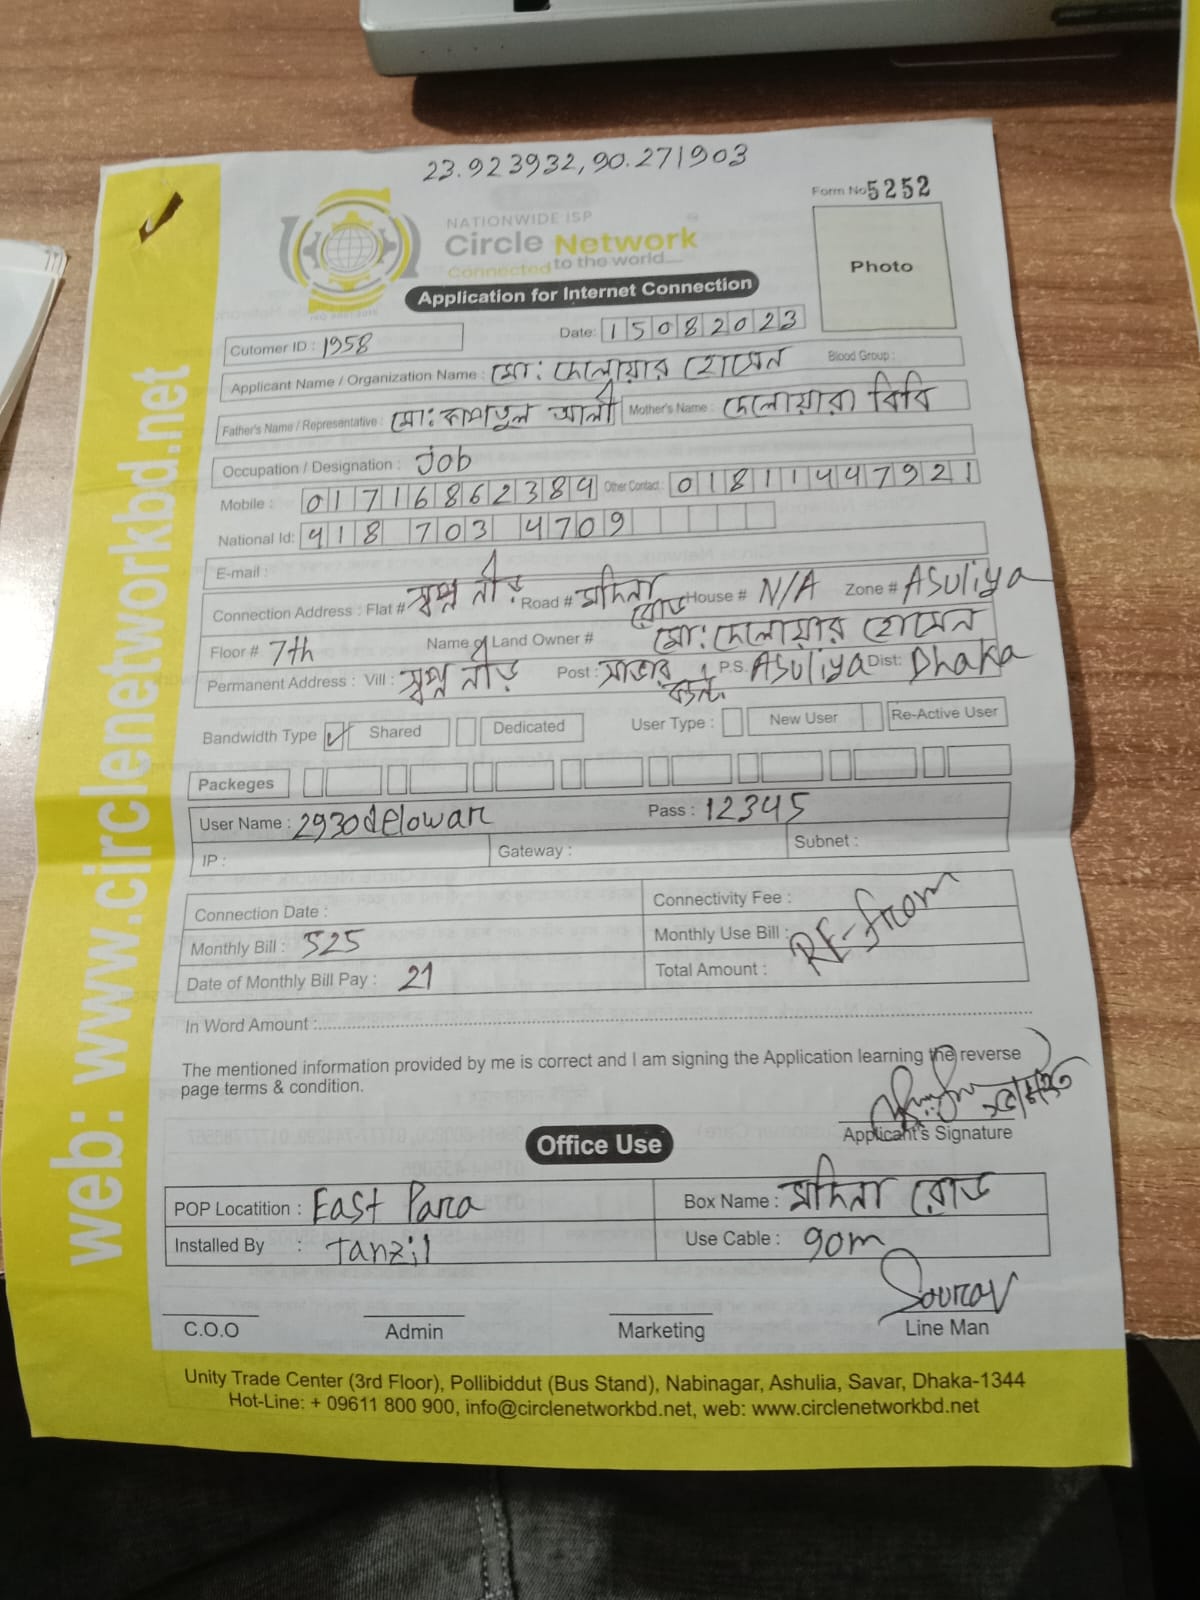 23.923932,90.271903
Form No 5252
NATIONWIDE ISP
Circle Network
Connected to the world
Photo
Application for Internet Connection
Cutomer ID : 1958
Date: 15082023
Applicant Name / Organization Name : মো: দেলোয়ার হোসেন
Blood Group :
Father's Name / Representative : মো: আলী
Mother's Name : দেলোয়ারা বিবি
Occupation / Designation : Job
Mobile : 01716862384 Other Contact : 01811447921
National Id: 418 703 4709
E-mail :
Connection Address : Flat # স্বপ্ন নীড় Road # মদিনা রোড House # N/A Zone # Asuliya
Floor # 7th Name of Land Owner # মো: দেলোয়ার হোসেন
Permanent Address : Vill : স্বপ্ন নীড় Post : সাভার P.S. Asuliya Dist: Dhaka
Bandwidth Type Shared Dedicated User Type : New User Re-Active User
Packeges
User Name : 2930delowar Pass : 12345
IP : Gateway : Subnet :
Connection Date : Connectivity Fee :
Monthly Bill : 525 Monthly Use Bill : RE-from
Date of Monthly Bill Pay : 21 Total Amount :
In Word Amount :
The mentioned information provided by me is correct and I am signing the Application learning the reverse
page terms & condition.
Applicant's Signature
Office Use
POP Locatition : East Para Box Name : মদিনা রোড
Installed By : Tanzil Use Cable : 90m
Sourav
C.O.O Admin Marketing Line Man
Unity Trade Center (3rd Floor), Pollibiddut (Bus Stand), Nabinagar, Ashulia, Savar, Dhaka-1344
Hot-Line: + 09611 800 900, info@circlenetworkbd.net, web: www.circlenetworkbd.net
web: www.circlenetworkbd.net